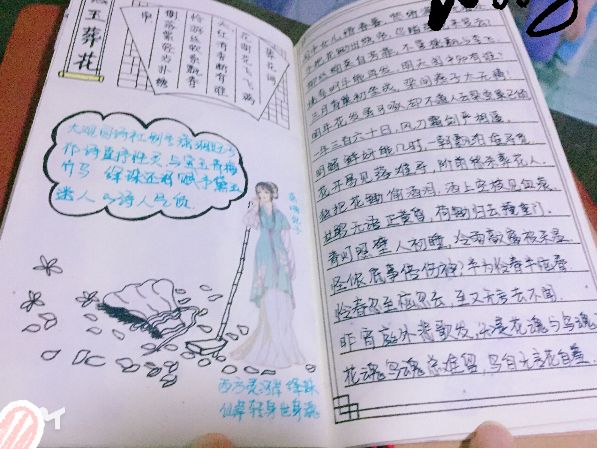 玉葬花
葬花词
花谢花飞飞满
天红消香断有谁
怜游丝软系飘春
榭落絮轻沾扑绣
帘
大观园诗社别号潇湘妃子
作诗直抒性灵 与宝玉青梅
竹马 绛珠还泪 赋予黛玉
迷人的诗人气质
潇湘妃子
西方灵河岸 绛珠
仙草转身
闺中女儿惜春暮,愁绪
手把花锄出绣帘,忍踏落花来复去
柳丝榆荚自芳菲,不管桃飘与李飞
桃李明年能再发,明年闺中知有谁?
三月香巢初垒成,梁间燕子太无情!
明年花发虽可啄,却不道人去梁空巢已倾
一年三百六十日,风刀霜剑严相逼
明媚鲜妍能几时,一朝飘泊难寻觅
花开易见落难寻,阶前愁杀葬花人
独把花锄偷洒泪,洒上空枝见血痕
杜鹃无语正黄昏,荷锄归去掩重门
青灯照壁人初睡,冷雨敲窗被未温
怪侬底事倍伤神?半为怜春半恼春
怜春忽至恼忽去,至又无言去不闻.
昨宵庭外悲歌发,知是花魂与鸟魂
花魂鸟魂总难留,鸟自无言花自羞.